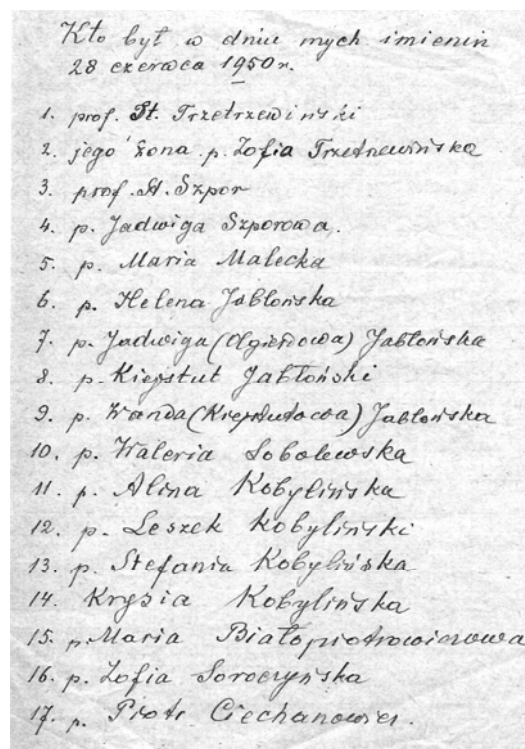 Kto był w dniu mych imienin
28 czerwca 1950 r.
1. prof. St. Trzetrzewiński
2. jego żona p. Zofia Trzetrzewińska
3. prof. St. Szpor
4. p. Jadwiga Szporowa.
5. p. Maria Malecka
6. p. Helena Jabłońska
7. p. Jadwiga (Olgierdowa) Jabłońska
8. p. Kiejstut Jabłoński
9. p. Wanda (Kiejstutowa) Jabłońska
10. p. Waleria Sobolewska
11. p. Alina Kobylińska
12. p. Leszek Kobyliński
13. p. Stefania Kobylińska
14. Krysia Kobylińska
15. p. Maria Białopiotrowiczowa
16. p. Zofia Soroczyńska
17. p. Piotr Ciechanowicz.